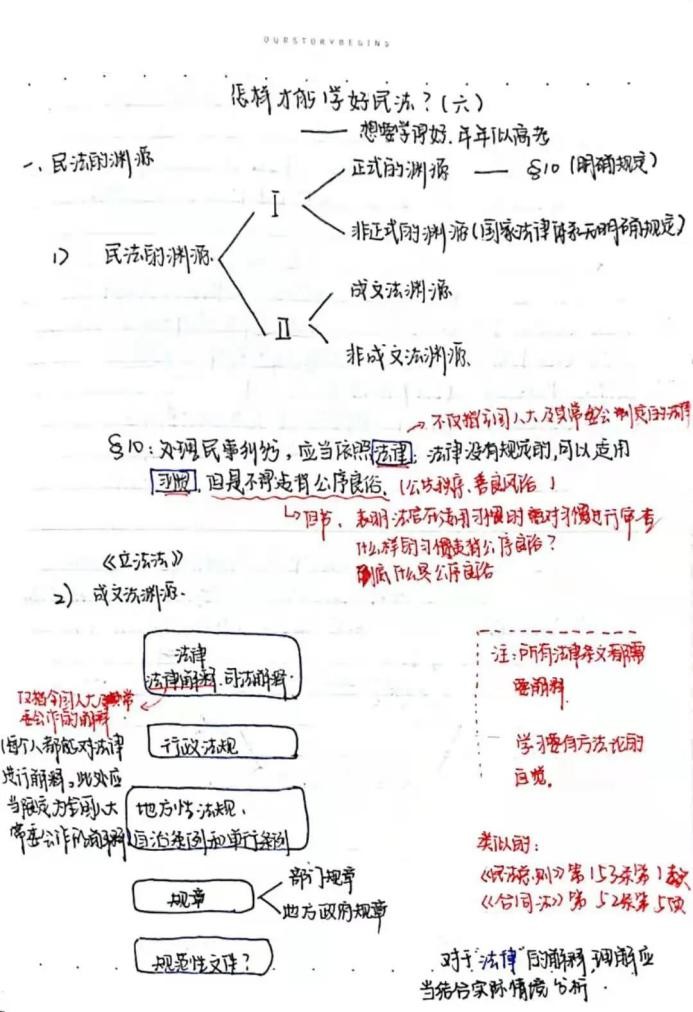 OURSTORYBEGINS
怎样才能学好民法?(六)
—— 想要学得好,年年似高考
一、民法的渊源
正式的渊源 —— §10 (明确规定)
I
非正式的渊源(国家法律体系无明确规定)
1) 民法的渊源
成文法渊源
II
非成文法渊源
不仅指全国人大及其常委会制定的法律
§10:处理民事纠纷,应当依照法律;法律没有规定的,可以适用
习惯,但是不得违背公序良俗。(公共秩序、善良风俗)
但书,表明法官在适用习惯时要对习惯进行审查
什么样的习惯违背公序良俗?
到底什么是公序良俗
《立法法》
2) 成文法渊源.
法律
法律解释.司法解释.
仅指全国人大常
委会作的解释
每个人都能对法律
进行解释,此处应
当限定为全国人大
常委会作的解释
行政法规
地方性法规、
自治条例和单行条例
规章
部门规章
地方政府规章
规范性文件?
注:所有法律条文都需
要解释.
学习要有方法论的
自觉。
类似的:
《民法总则》第153条第1款
《合同法》第52条第5项
对于"法律"的解释,理解应
当结合实际情境分析.